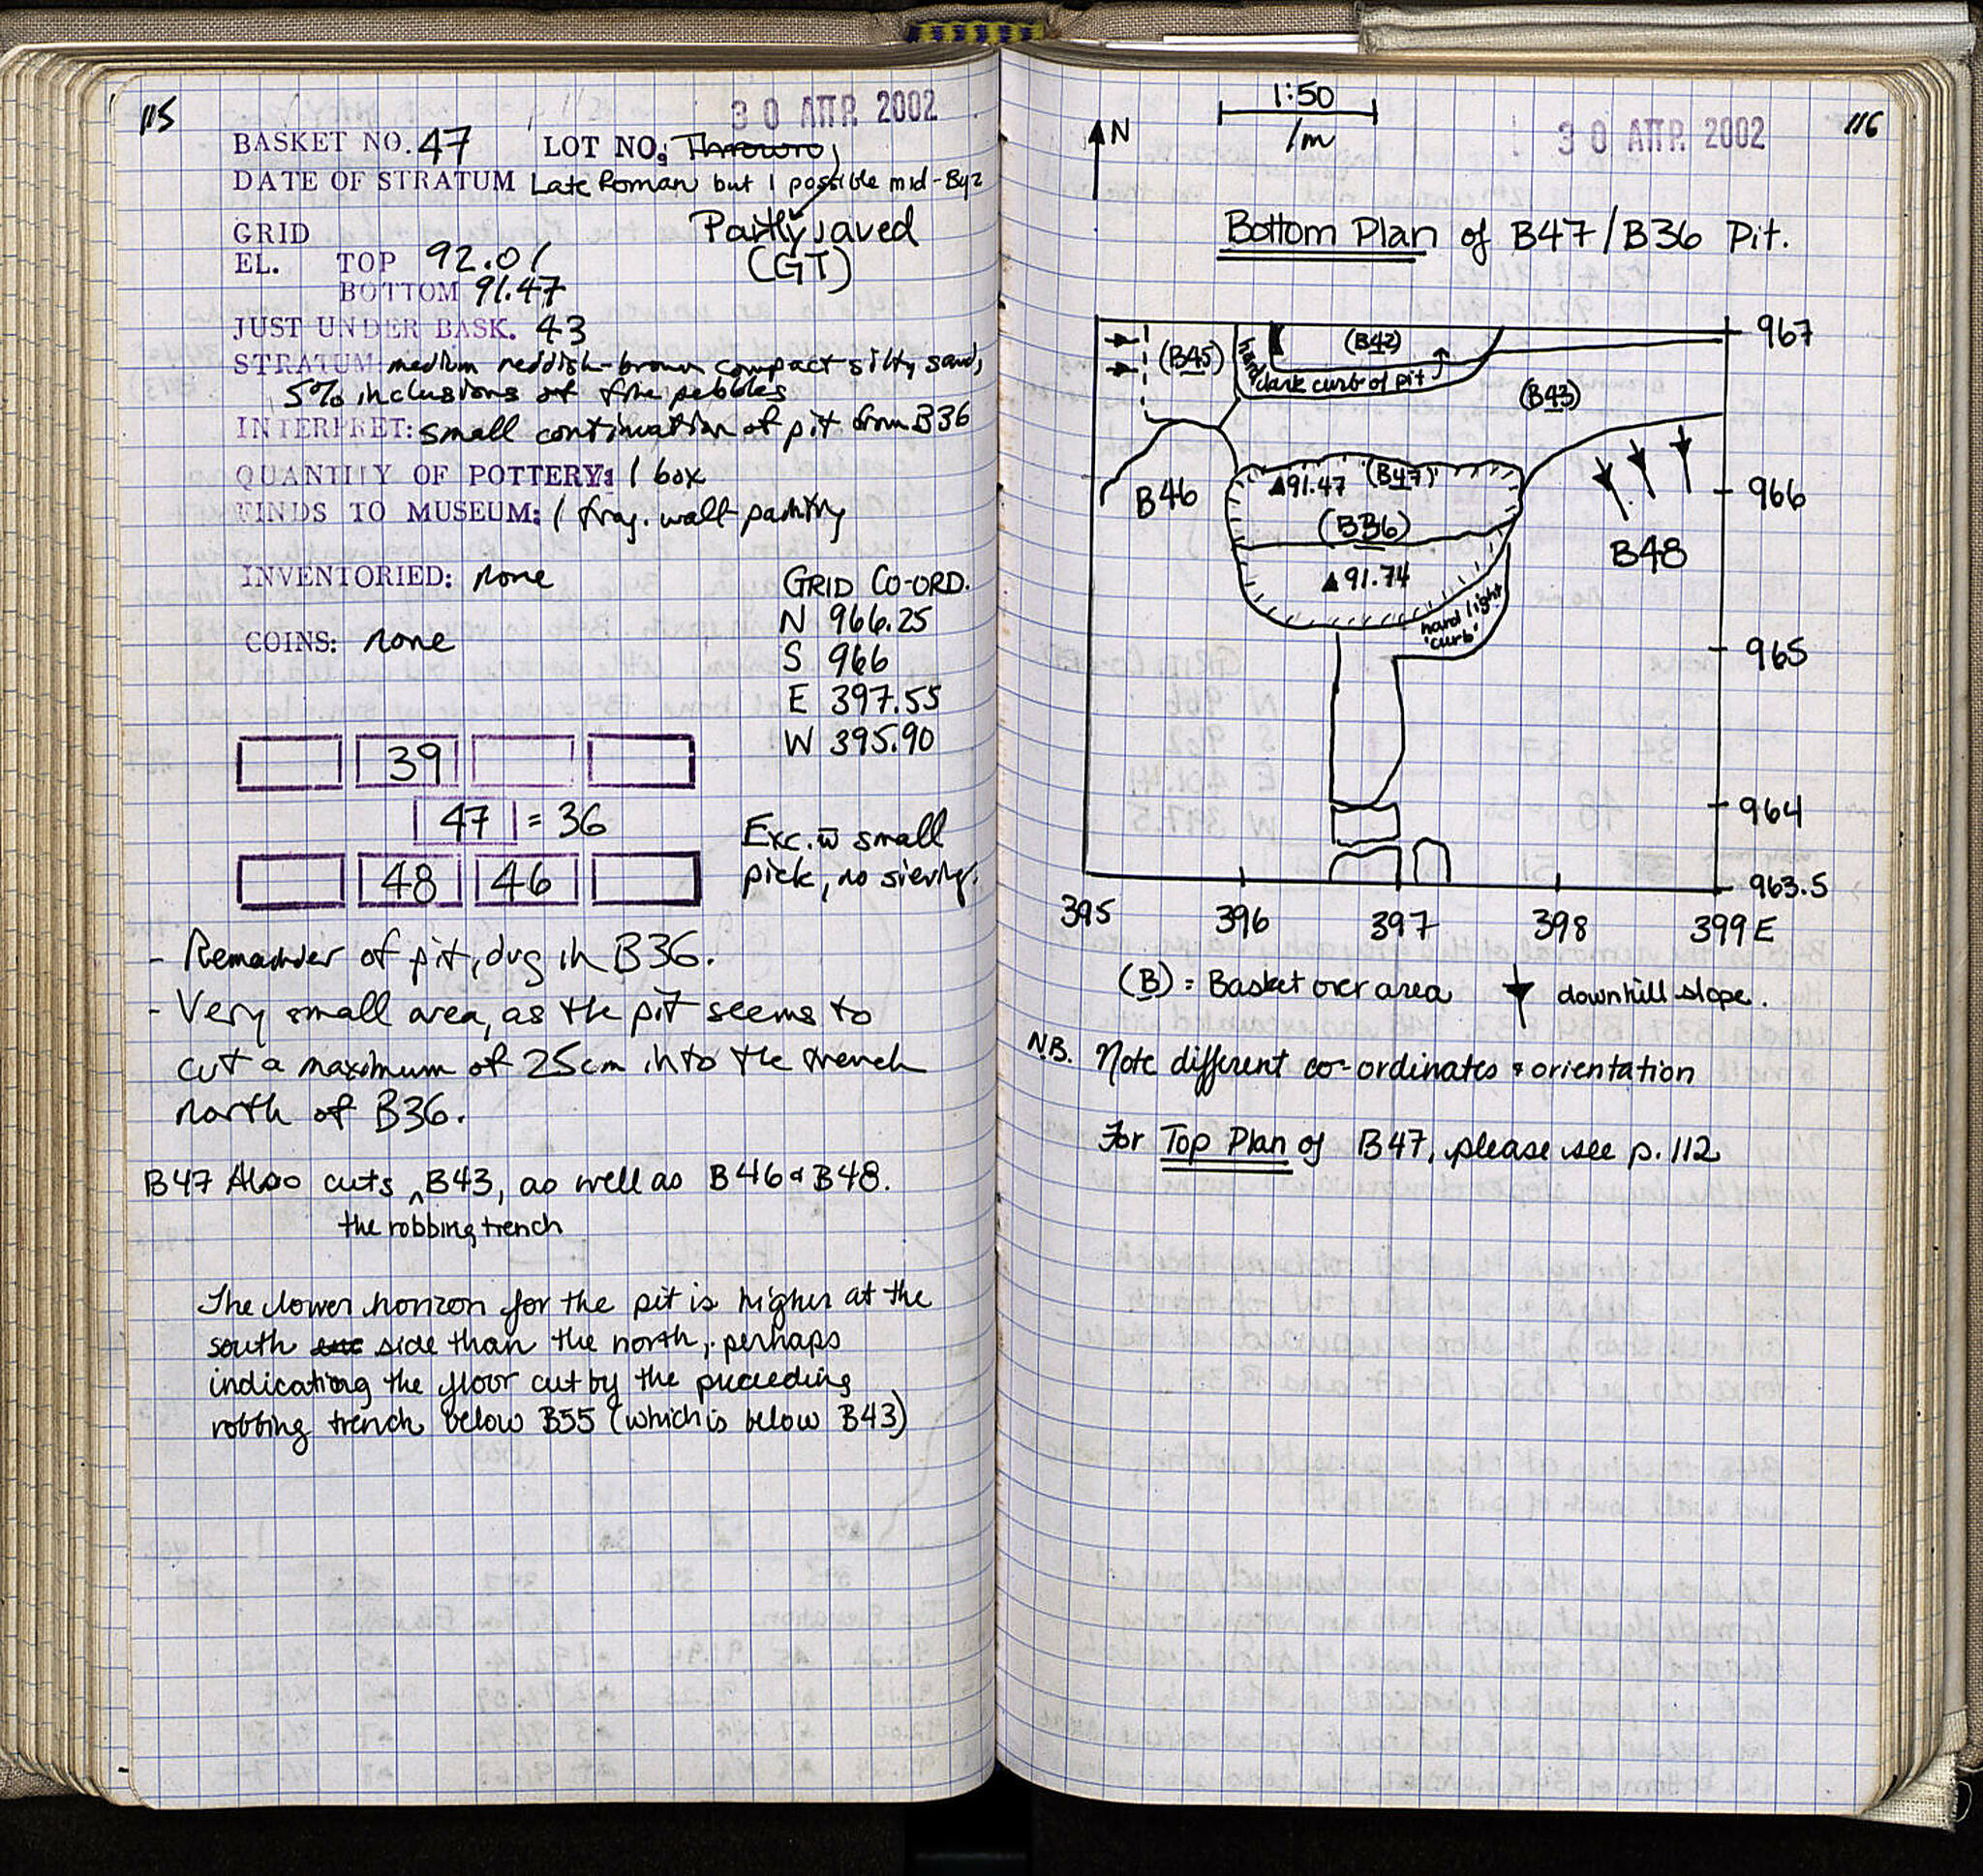 115
30 ΑΠΡ. 2002
BASKET NO. 47 LOT NO:
DATE OF STRATUM Late Roman but 1 possible mid-Byz
Partly saved
(GT)
GRID
EL. TOP 92.01
BOTTOM 91.47
JUST UNDER BASK. 43
STRATUM: medium reddish-brown compact silty sand,
5% inclusions of fine pebbles
INTERPRET: small continuation of pit from B36
QUANTITY OF POTTERY: 1 box
FINDS TO MUSEUM: 1 frag. wall painting
INVENTORIED: none
COINS: none
GRID CO-ORD.
N 966.25
S 966
E 397.55
W 395.90
39
47 = 36
48 46
Exc. w̄ small
pick, no sieving.
- Remainder of pit, dug in B36.
- Very small area, as the pit seems to
cut a maximum of 25cm into the trench
north of B36.
B47 Also cuts ^ B43, as well as B46 & B48.
the robbing trench
The lower horizon for the pit is higher at the
south side than the north, perhaps
indicating the floor cut by the preceding
robbing trench below B55 (which is below B43)
116
30 ΑΠΡ. 2002
1:50
1m
N
Bottom Plan of B47/B36 Pit.
967
(B45)
(B42)
hard
dark curb of pit
(B43)
B46
▲91.47 (B47)
966
(B36)
B48
▲91.74
hard light
'curb'
965
964
963.5
395 396 397 398 399E
(B) = Basket over area
downhill slope.
N.B. Note different co-ordinates & orientation
For Top Plan of B47, please see p. 112